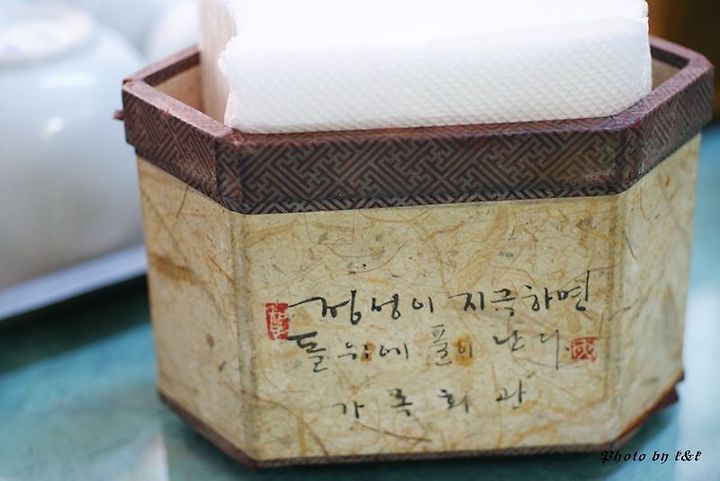 정성이 지극하면
돌위에 풀이 난다
가족회관
Photo by k&k